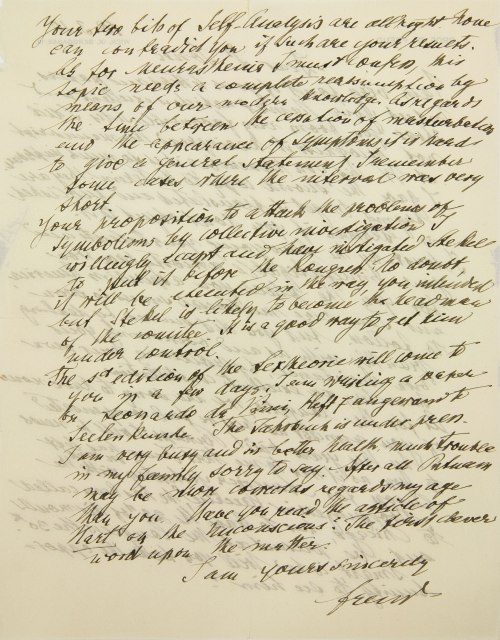 Your two bits of Self-Analysis are all right. None
can contradict you if such are your results.
As for Neurasthenia I must confess, this
topic needs a complete reassumption by
means of our modern knowledge. As regards
the time between the cessation of masturbation
and the appearance of symptoms it is hard
to give a general statement. I remember
some cases where the interval was very
short.
Your proposition to attack the problems of
Symbolism by collective investigation I
willingly accept and have instigated Stekel
to put it before the Kongress. No doubt,
it will be executed in the way you intended
but Stekel is likely to become the headman
of the comitee. It is a good way to get him
under control.
The 2d edition of the Sextheorie will come to
you in a few days, I am writing a paper
on Leonardo da Vinci, Heft 7 angewandte
Seelenkunde. The Jahrbuch is under press.
I am very busy and in better health, much trouble
in my family sorry to say. After all Putnam
may be more correct as regards my age
than you. Have you read the article of
Hart on the Unconscious? The first clever
word upon the matter.
I am yours sincerely
Freud